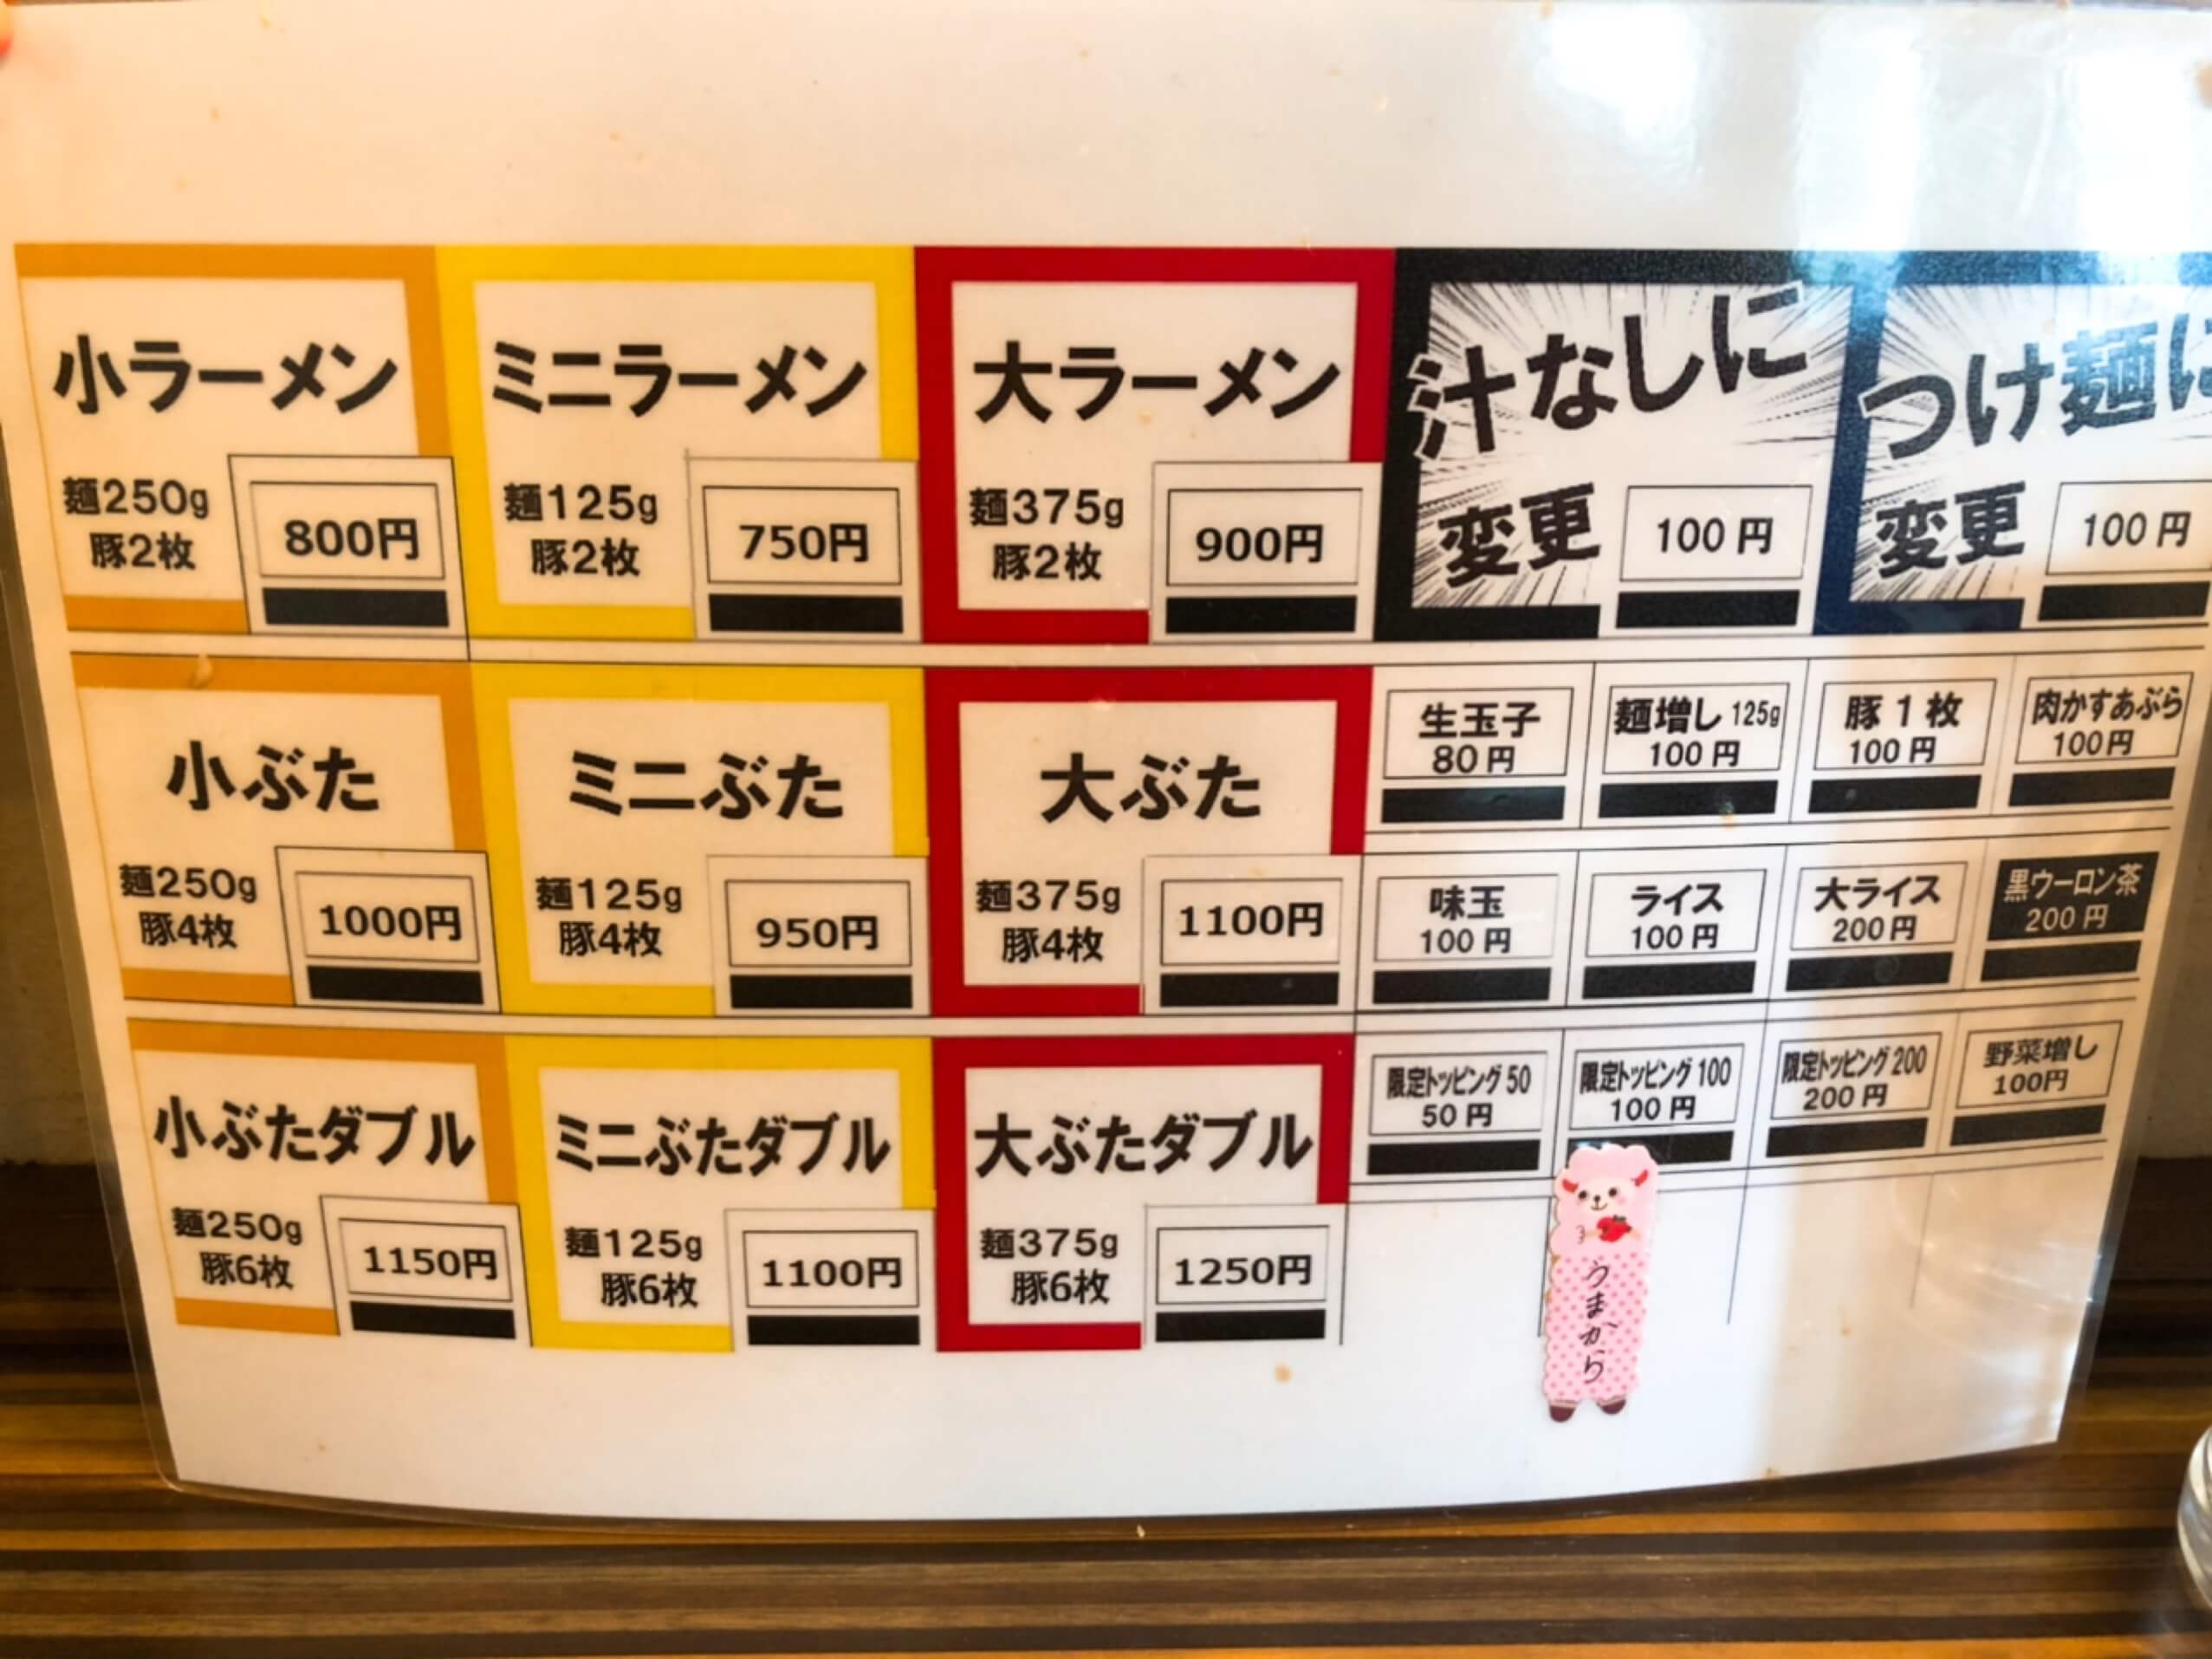 小ラーメン
麺250g
豚2枚
800円
ミニラーメン
麺125g
豚2枚
750円
大ラーメン
麺375g
豚2枚
900円
汁なしに
変更
100円
つけ麺に
変更
100円
小ぶた
麺250g
豚4枚
1000円
ミニぶた
麺125g
豚4枚
950円
大ぶた
麺375g
豚4枚
1100円
生玉子
80円
麺増し125g
100円
豚1枚
100円
肉かすあぶら
100円
味玉
100円
ライス
100円
大ライス
200円
黒ウーロン茶
200円
小ぶたダブル
麺250g
豚6枚
1150円
ミニぶたダブル
麺125g
豚6枚
1100円
大ぶたダブル
麺375g
豚6枚
1250円
限定トッピング50
50円
限定トッピング100
100円
限定トッピング200
200円
野菜増し
100円
うまから